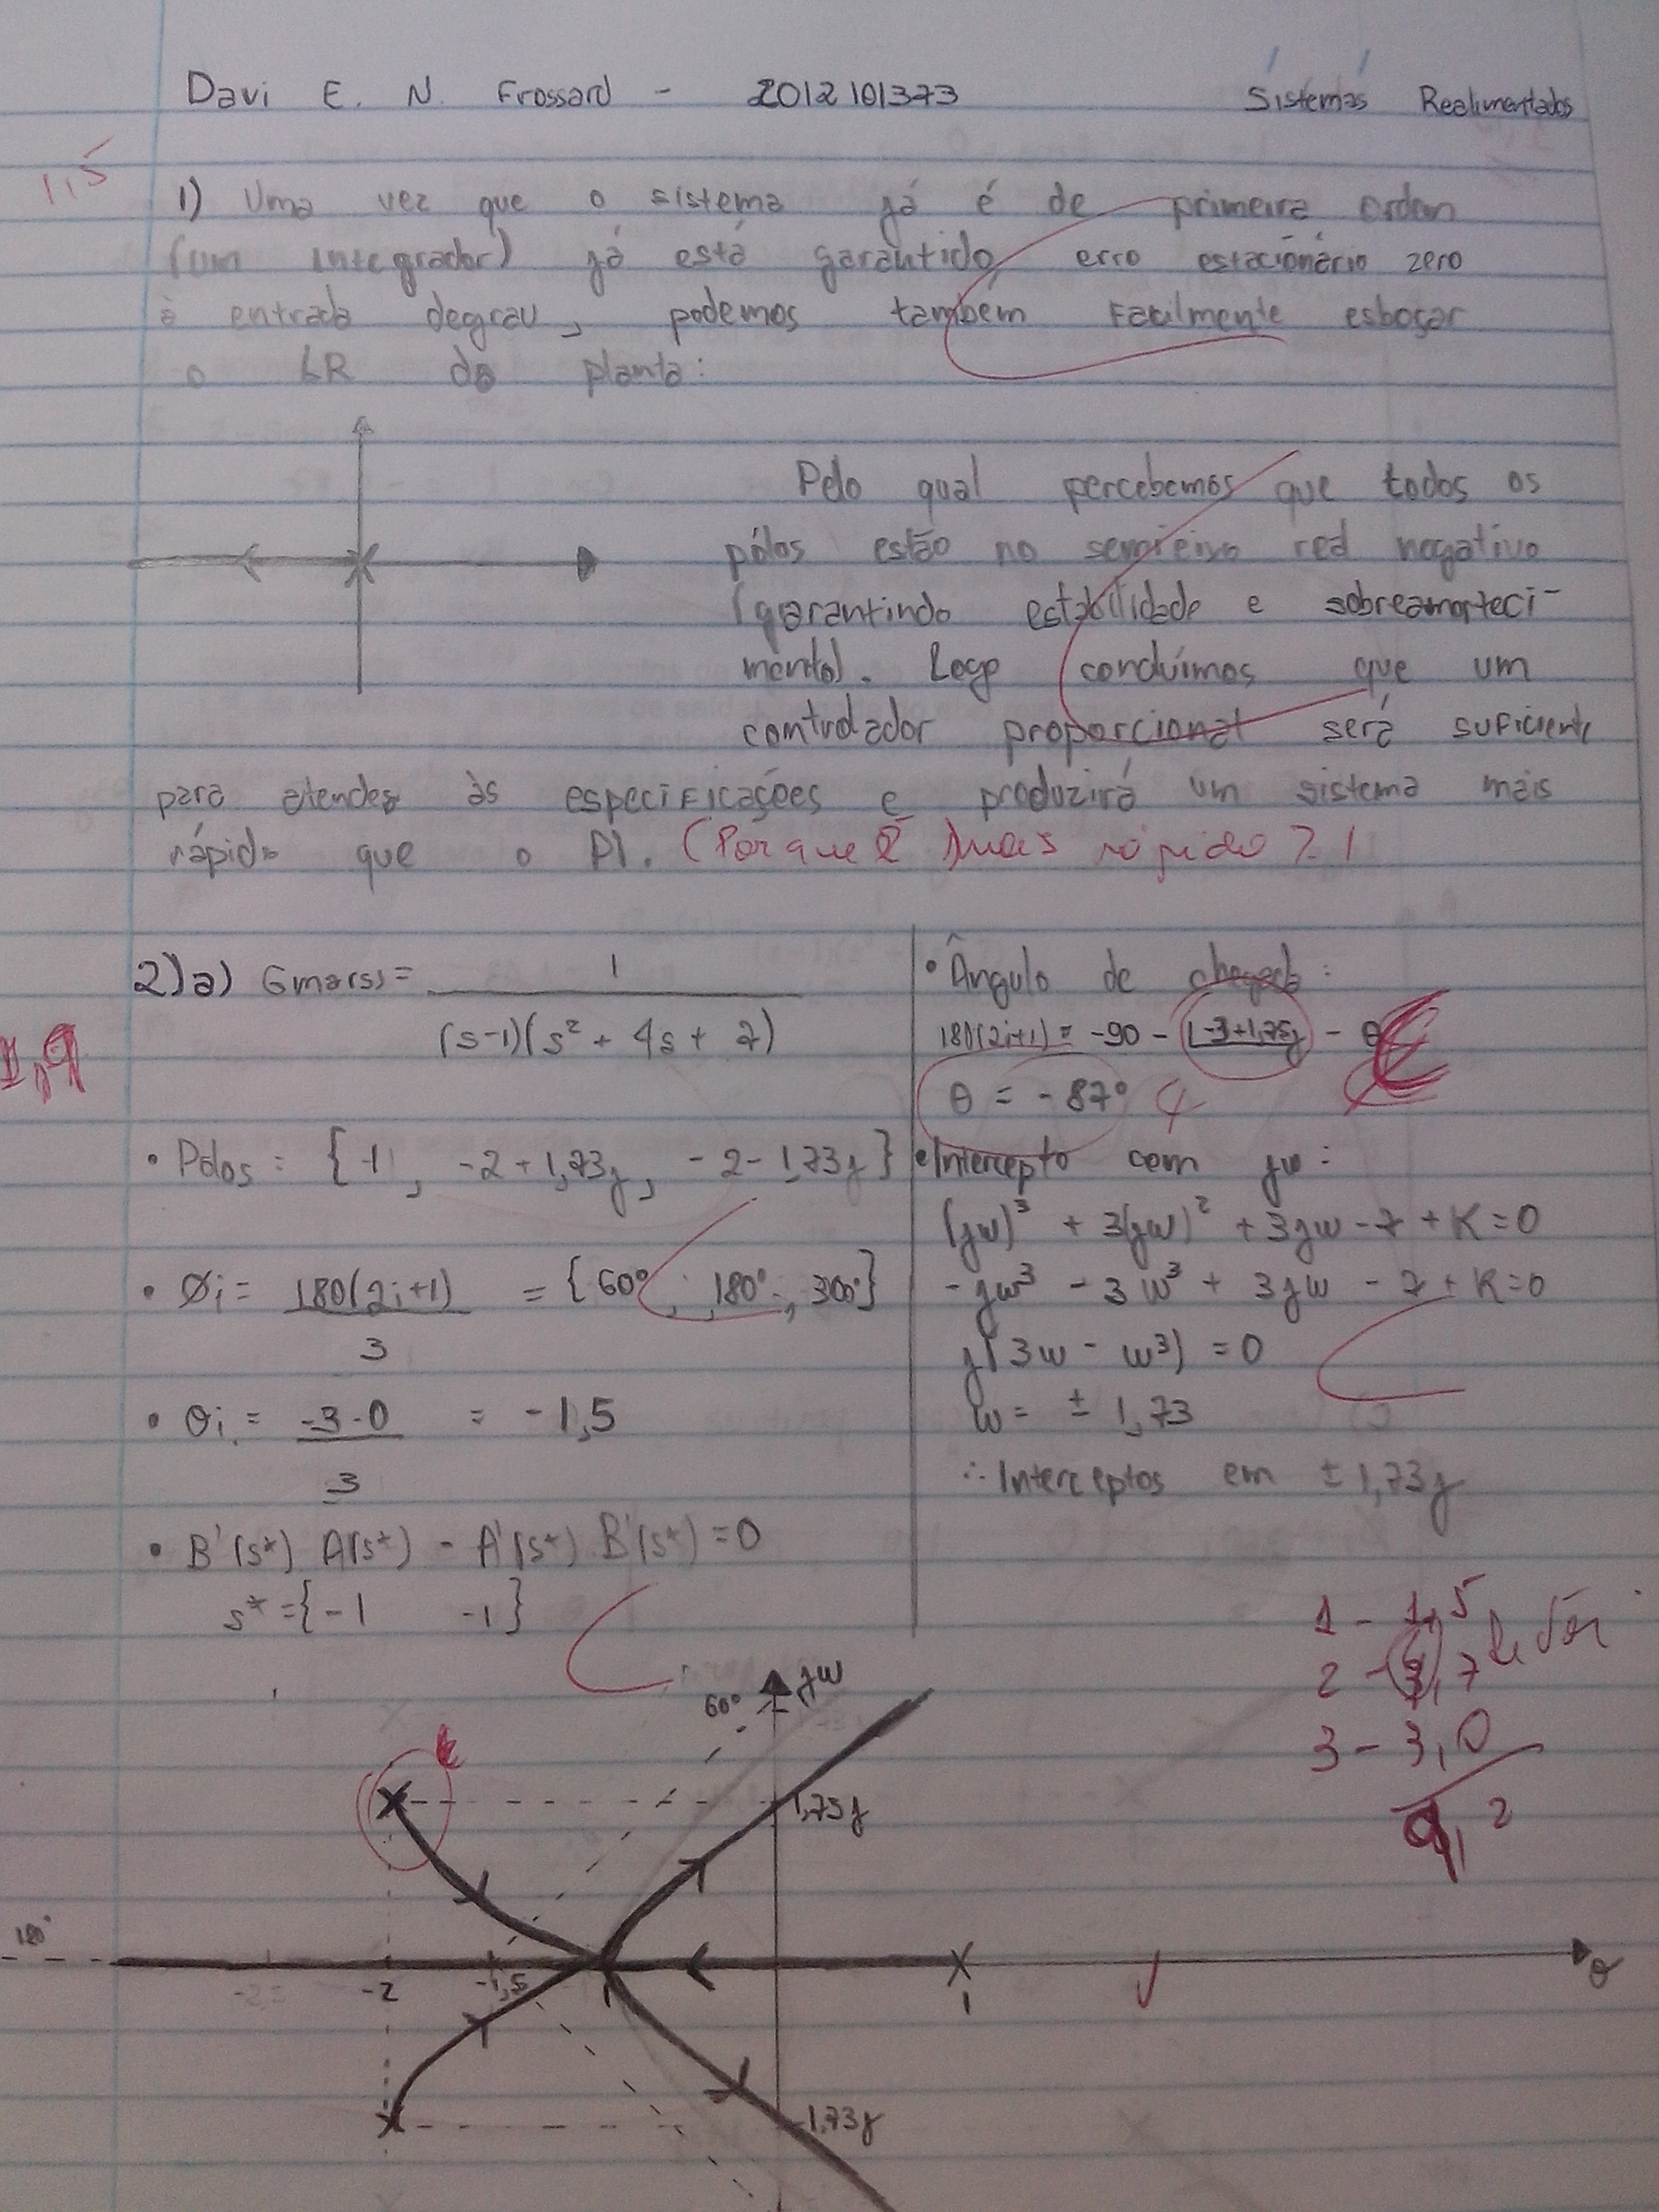 Davi E. N. Frossard - 2012101373 Sistemas Realimentados
1,5
1) Uma vez que o sistema já é de primeira ordem
(um integrador) já está garantido erro estacionário zero
à entrada degrau, podemos também facilmente esboçar
o LR da planta:
Pelo qual percebemos que todos os
pólos estão no semieixo real negativo
(garantindo estabilidade e sobreamorteci-
mento). Logo concluímos que um
controlador proporcional será suficiente
para atender às especificações e produzirá um sistema mais
rápido que o PI. (Por que é mais rápido?)
1,9
2)a) Gma(s) = 1
(s-1)(s² + 4s + 7)
• Pólos = {1, -2+1,73j, -2-1,73j}
• Øi = 180(2i+1) = {60°, 180°, 300°}
3
• σi = -3-0 = -1,5
3
• B'(s*) A(s*) - A'(s*) B'(s*) = 0
s* = {-1 -1}
• Ângulo de chegada:
180(2i+1) = -90 - |-3+1,75j - θ
θ = -87°
• Intercepto com jw:
(jw)³ + 3(jw)² + 3jw - 7 + K = 0
-jw³ - 3w³ + 3jw - 7 + K = 0
j(3w - w³) = 0
w = ± 1,73
∴ Interceptos em ± 1,73j
1 - 1,5
2 - ,7
3 - 3,0
9,2
60° jw
1,73j
180°
-2 -1,5 1 σ
-1,73j